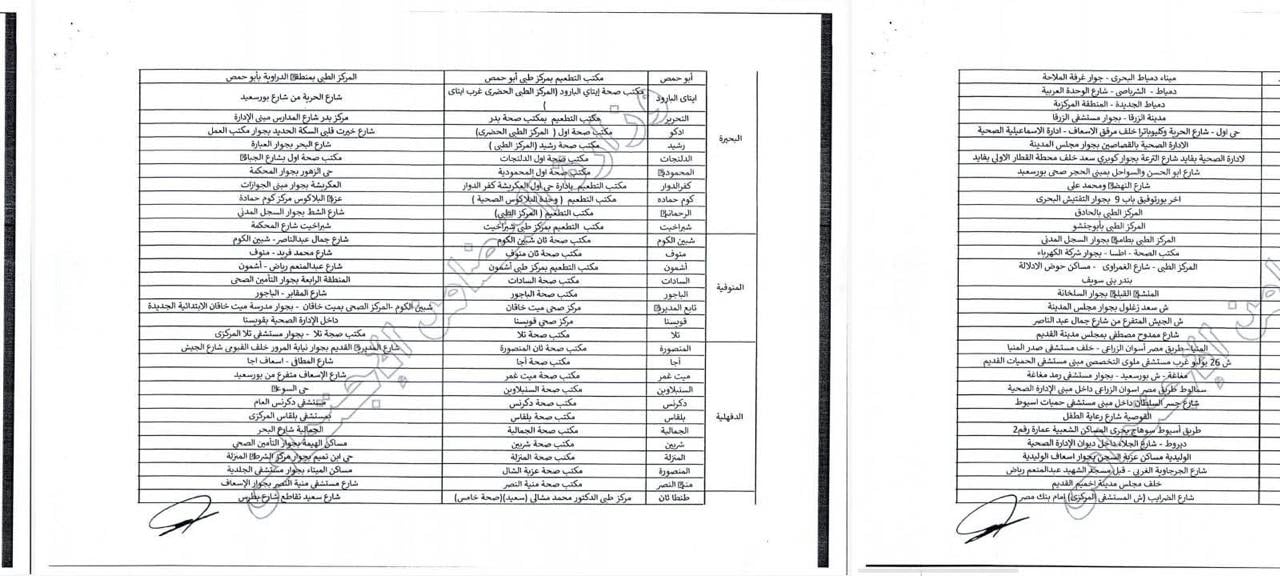 البحيرة
أبو حمص مكتب التطعيم بمركز طبى أبو حمص المركز الطبى بمنطقة الدراوية بأبو حمص
ايتاى البارود مكتب صحة إيتاي البارود (المركز الطبى الحضرى غرب ايتاى ) شارع الحرية من شارع بورسعيد
التحرير مكتب التطعيم بمكتب صحة بدر مركز بدر شارع المدارس مبنى الإدارة
ادكو مكتب صحة اول ( المركز الطبى الحضرى) شارع خيرت قلبى السكة الحديد بجوار مكتب العمل
رشيد مكتب صحة رشيد (المركز الطبى ) شارع البحر بجوار العبارة
الدلنجات مكتب صحة اول الدلنجات مكتب صحة اول بشارع
المحمودية مكتب صحة اول المحمودية حى الزهور بجوار المحكمة
كفرالدوار مكتب التطعيم بإدارة حى اول العكريشة كفر الدوار العكريشة بجوار مبنى الجوازات
كوم حماده مكتب التطعيم ( وحدة البلاكوس الصحية ) البلاكوس مركز كوم حمادة
الرحمانية مكتب التطعيم ( المركز الطبى) شارع الشط بجوار السجل المدني
شبراخيت مكتب التطعيم بمركز طبى شبراخيت شبراخيت شارع المحكمة
المنوفية
شبين الكوم مكتب صحة ثان شبين الكوم شارع جمال عبدالناصر- شبين الكوم
منوف مكتب صحة ثان منوف شارع محمد فريد - منوف
أشمون مكتب التطعيم بمركز طبى أشمون شارع عبدالمنعم رياض - أشمون
السادات مكتب صحة السادات المنطقة الرابعة بجوار التأمين الصحى
الباجور مكتب صحة الباجور شارع المقابر - الباجور
تابع المديرية مركز صحى ميت خاقان شبين الكوم -المركز الصحى بميت خاقان - بجوار مدرسة ميت خاقان الابتدائية الجديدة
قويسنا مركز صحى قويسنا داخل الإدارة الصحية بقويسنا
تلا مكتب صحة تلا مكتب صحة تلا - بجوار مستشفى تلا المركزى
الدقهلية
المنصورة مكتب صحة ثان المنصورة شارع المديرية القديم بجوار نيابة المرور خلف القبومى شارع الجيش
أجا مكتب صحة أجا شارع المطافى - اسعاف اجا
ميت غمر مكتب صحة ميت غمر شارع الإسعاف متفرع من بورسعيد
السنبلاوين مكتب صحة السنبلاوين حى
دكرنس مكتب صحة دكرنس مستشفى دكرنس العام
بلقاس مكتب صحة بلقاس بمستشفى بلقاس المركزى
الجمالية مكتب صحة الجمالية الجمالية شارع البحر
شربين مكتب صحة شربين مساكن الهيمة بجوار التأمين الصحي
المنزلة مكتب صحة المنزلة حي ابن تميم بجوار مركز الشرطة المنزلة
المنصورة مكتب صحة عزبة الشال مساكن الميناء بجوار مستشفى الجلدية
منية النصر مكتب صحة منية النصر شارع مستشفى منية النصر بجوار الإسعاف
طنطا ثان مركز طبى الدكتور محمد مشالي (سعيد)(صحة خامس) شارع سعيد تقاطع شارع بطرس
ميناء دمياط البحرى - جوار غرفة الملاحة
دمياط - الشرباصى - شارع الوحدة العربية
دمياط الجديدة - المنطقة المركزية
مدينة الزرقا - بجوار مستشفى الزرقا
حى اول - شارع الحرية وكليوباترا خلف مرفق الاسعاف - ادارة الاسماعيلية الصحية
الادارة الصحية بالقصاصين بجوار مجلس المدينة
لادارة الصحية بفايد شارع الترعة بجوار كوبري سعد خلف محطة القطار الاولى بفايد
شارع ابو الحسن والسواحل بمبنى الحجر صحى بورسعيد
شارع النهضة ومحمد على
اخر بورتوفيق باب 9 بجوار التفتيش البحرى
المركز الطبي بالحادق
المركز الطبى بأبوجنشو
المركز الطبى بطامية بجوار السجل المدنى
مكتب الصحة - اطسا - بجوار شركة الكهرباء
المركز الطبى - شارع الغمراوى - مساكن حوض الادلالة
بندر بنى سويف
بجوار السلخانة
ش سعد زغلول بجوار مجلس المدينة
ش الجيش المتفرع من شارع جمال عبد الناصر
شارع ممدوح مصطفى بمجلس مدينة القديم
المنيا-طريق مصر أسوان الزراعى - خلف مستشفى صدر المنيا
ش 26 يوليو غرب مستشفى ملوى التخصصى مبنى مستشفى الحميات القديم
مغاغة - ش بورسعيد - بجوار مستشفى رمد مغاغة
سمالوط طريق مصر اسوان الزراعى داخل مبنى الإدارة الصحية
شارع جسر السلطان داخل مبنى مستشفى حميات اسيوط
القوصية شارع رعاية الطفل
طريق أسيوط سوهاج بحرى المساكن الشعبية عمارة رقم2
ديروط - شارع الجلاء داخل ديوان الإدارة الصحية
الوليدية مساكن عزبة السجن بجوار اسعاف الوليدية
شارع الجرجاوية الغربى - قبل مسجد الشهيد عبدالمنعم رياض
خلف مجلس مدينة اخميم القديم
شارع الضرايب (ش المستشفى المركزى) امام بنك مصر